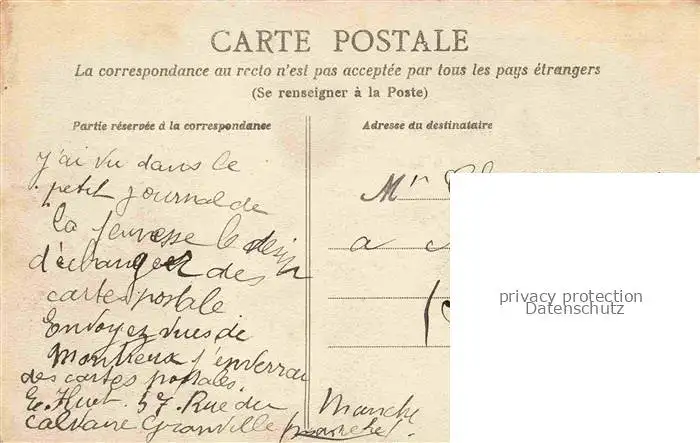 CARTE POSTALE
La correspondance au recto n'est pas acceptée par tous les pays étrangers
(Se renseigner à la Poste)
Partie réservée à la correspondance
Adresse du destinataire
J'ai vu dans le
petit journal de
la jeunesse le desir
d'échanger des
cartes postale
Envoyez vues de
Montreux j'enverrai
des cartes postales.
E. Huet. 57. Rue du
Calvaire Granville (manche).
Mr
a
Manche
privacy protection
Datenschutz